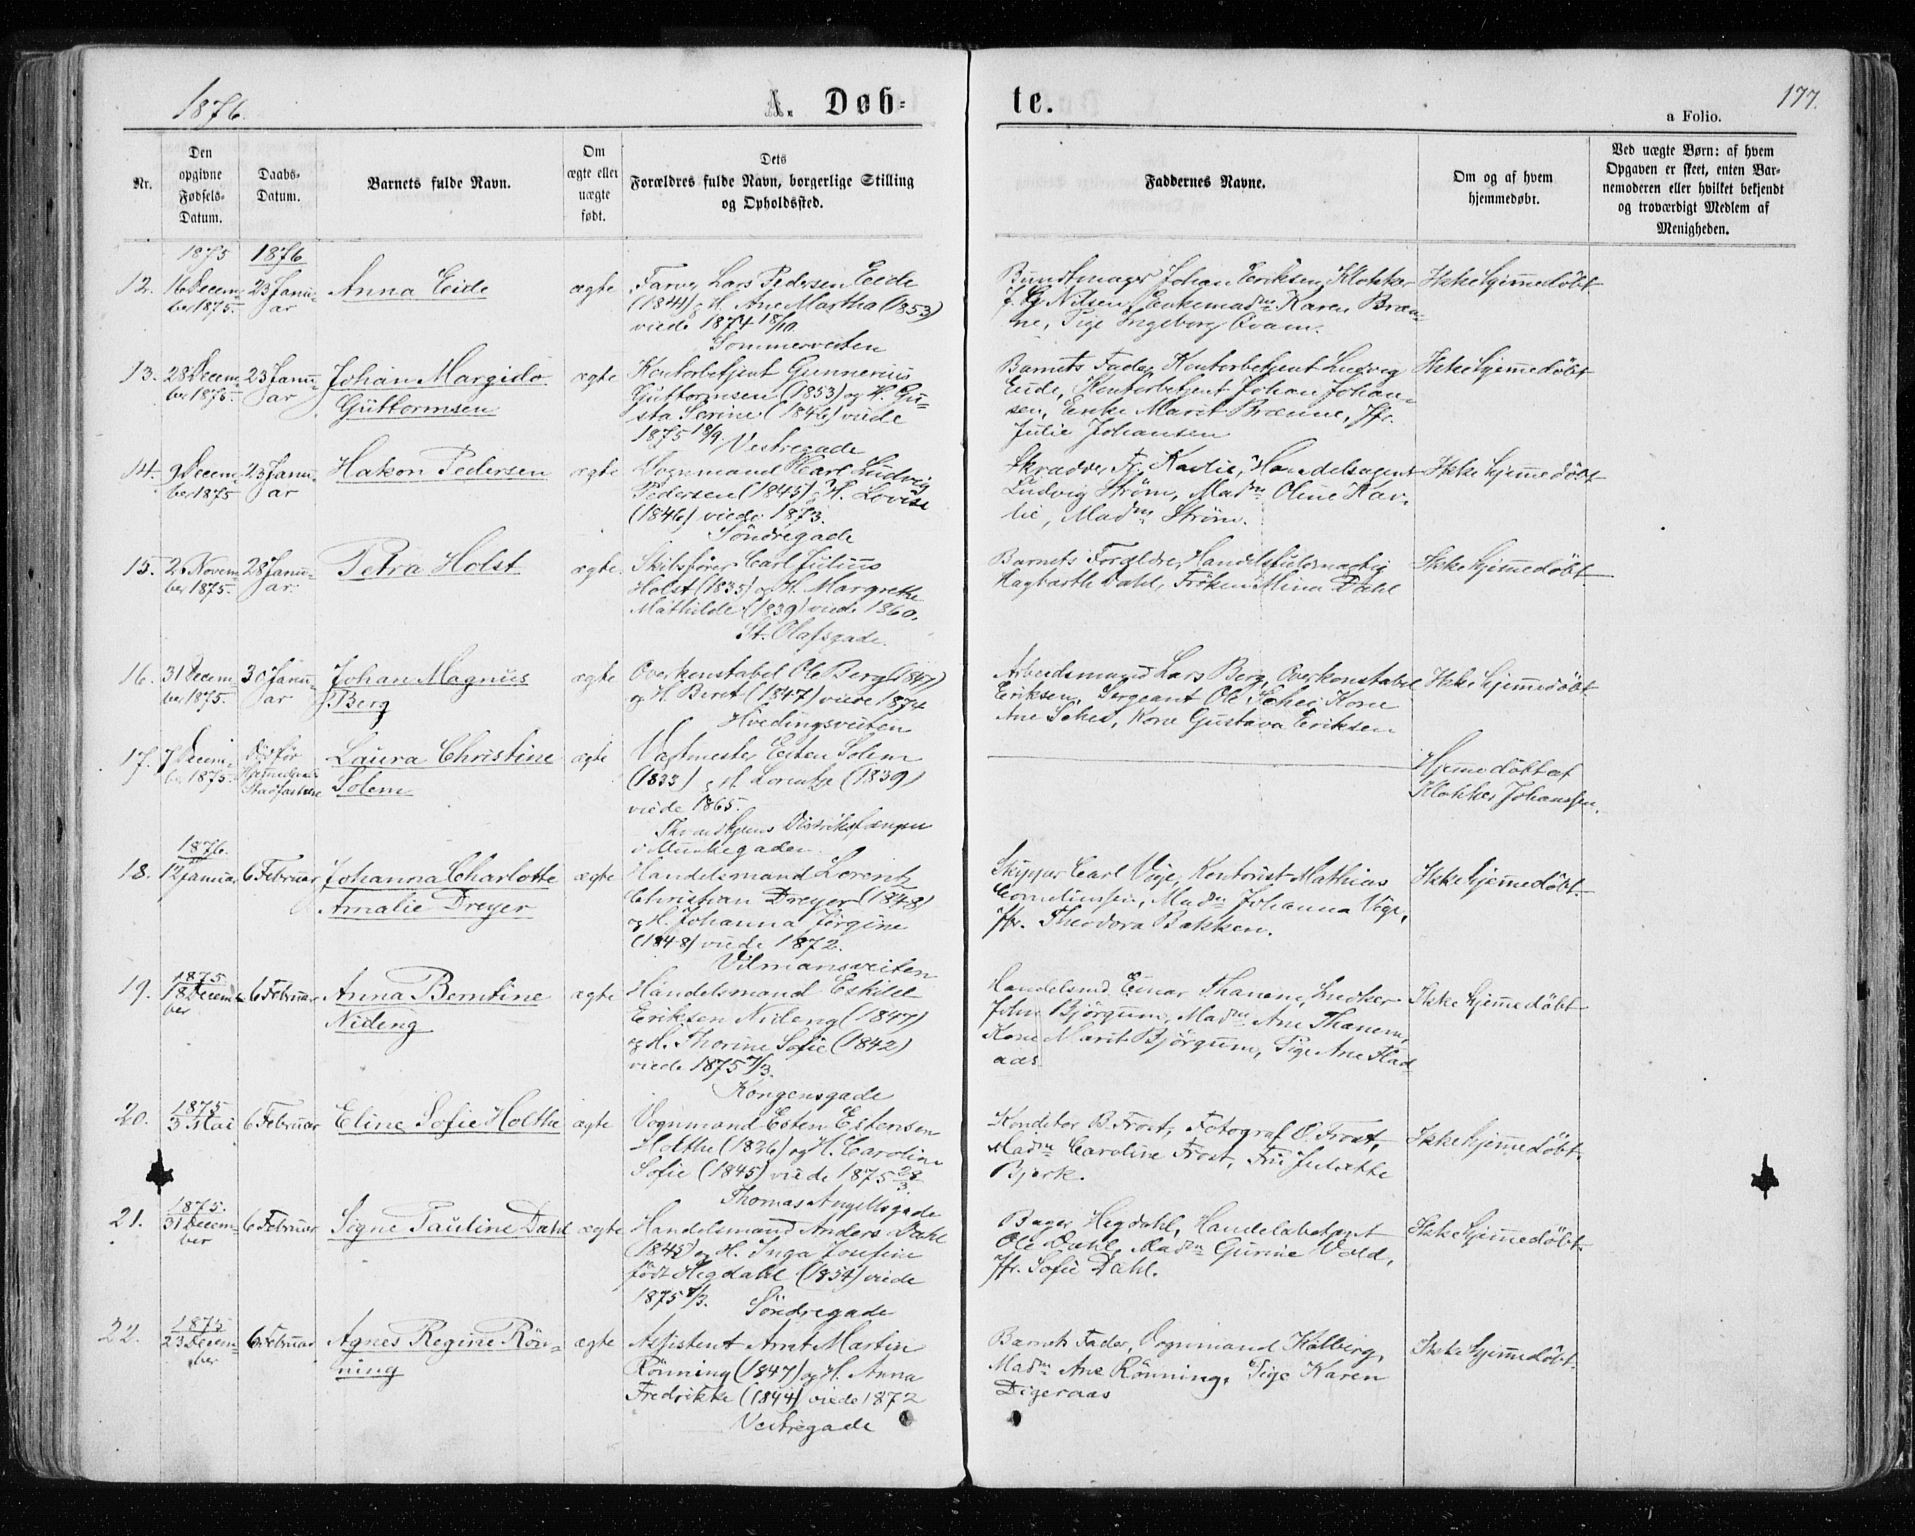 1876.
A. Døb-
te.
177.
a Folio.
Nr.
Den opgivne Fødsels-Datum.
Daabs-Datum.
Barnets fulde Navn.
Om ægte eller uægte født.
Dets Forældres fulde Navn, borgerlige Stilling og Opholdssted.
Faddernes Navne.
Om og af hvem hjemmedøbt.
Ved uægte Børn: af hvem Opgaven er skeet, enten Barnemoderen eller hvilket bekjendt og troværdigt Medlem af Menigheden.
1875
1876
12.
16 Decem-
ber 1875.
23 Janu-
ar
Anna Eide
ægte
Farver Lars Pedersen Eide
(1844) & H. Ane Martha (1853)
viede 1874 18/10
Sommerveiten
Bundtmager Johan Eriksen, Klokker
Nilsen, Enkemadm Karen Bræn-
ne, Pige Ingeborg Qvam.
Ikke hjemmedøbt
13.
28 Decem-
ber 1875.
23 Janu-
ar
Johan Margido
Guttormsen
ægte
Kontorbetjent Gunnerius
Guttormsen (1853) og H. Gu-
sta Serine (1846) viede
1875 18/9. Vestregade
Barnets Fader, Kontorbetjent Ludvig
Eide, Kontorbetjent Johan Johan-
sen, Enke Marit Brænne, Jfr.
Julie Johansen
Ikke hjemmedøbt
14.
9 Decem-
ber 1875
23 Janu-
ar
Hakon Pedersen
ægte
Vognmand Carl Ludvig
Pedersen (1845) & H. Lovise
(1846) viede 1873.
Söndregade
Skrædder Fr. Kavlie, Handelsagent
Ludvig Strøm, Madm Oline Kav-
lie, Madm Strøm.
Ikke hjemmedøbt
15.
Novem-
ber 1875.
28 Janu-
ar.
Petra Holst
ægte.
Skibsfører Carl Julius
Holst (1835) og H. Margrethe
Mathilde (1839) viede 1860.
St. Olafsgade.
Barnets Forældre, Handelsfuldmægtig
Hagbarth Dahl, Frøken Mina Dahl
Ikke hjemmedøbt
16.
31 Decem-
ber 1875.
30 Janu-
ar
Johan Magnus
Berg
ægte
Overkonstabel Ole Berg (1847)
og H. Beret (1847) viede 1874
Hvedingsveiten
Arbeidsmand Lars Berg, Overkonstabel
Eriksen, Sergeant Ole Schei, Kone
Ane Schei, Kone Gustava Eriksen
Ikke hjemmedøbt
17.
7 Decem-
ber 1875.
Laura Christine
Solem
ægte
Vagtmester Esten Solem
(1833) og H. Lorentze (1839)
viede 1865.
Throndhjems Distriktsfængsel
i Munkegaden.
Hjemmedøbt af
Klokker Johanssen.
1876.
18.
12 Januar
6 Februar
Johanna Charlotte
Amalie Dreyer
ægte
Handelsmand Lorentz
Christian Dreyer (1848)
og H. Johanna Jörgine
(1848) viede 1872.
Vilmansveiten
Skipper Carl Vige, Kontorist Mathias
Corneliussen, Madm Johanna Vige,
Jfr. Theodora Bakken.
Ikke hjemmedøbt
19.
1875
18 Decem-
ber
6 Februar
Anna Berntine
Nideng
ægte
Handelsmand Eskild
Eriksen Nideng (1847)
og H. Thorine Sofie (1842)
viede 1875 7/3.
Kongensgade
Handelsmd. Einar Thanem, Snedker
John Bjørgum, Madm Ane Thanem,
Kone Marit Bjørgum, Pige Ane Flad-
aas
Ikke hjemmedøbt
20.
1875
3 Mai
6 Februar
Eline Sofie Holthe
ægte
Vognmand Esten Estensen
Holthe (1826) og H. Caroline
Sofie (1845) viede 1875 28/3.
Thomas Angellsgade
Konditor B. Frost, Fotograf O. Frost,
Madm Caroline Frost, Fru Juliette
Bjerk.
Ikke hjemmedøbt.
21.
1875.
31 Decem-
ber
6 Februar
Signe Pauline Dahl
ægte
Handelsmand Anders Dahl
(1845) og H. Inga Josefine
født Hegdahl (1854) viede
1875 /3. Söndregade
Bager Hegdahl, Handelsbetjent
Ole Dahl, Madm Gurine Wold,
Jfr. Sofie Dahl.
Ikke hjemmedøbt.
22.
1875
23 Decem-
ber
6 Februar
Agnes Regine Rön-
ning
ægte
Assistent Arnt Martin
Rönning (1847) og H. Anna
Fredrikke (1844) viede 1872
Vestregade
Barnets Fader, Vognmand Kolberg,
Madm Ane Rönning, Pige Karen
Digeraas
Ikke hjemmedøbt.